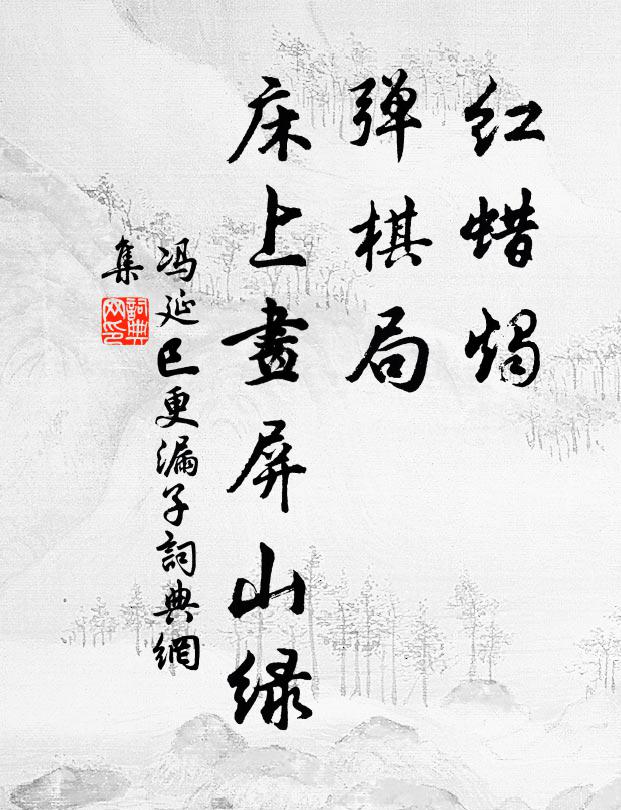 红蜡烛
弹棋局
床上畫屏山绿
冯延巳更漏子詞典網
集
詞典
网印